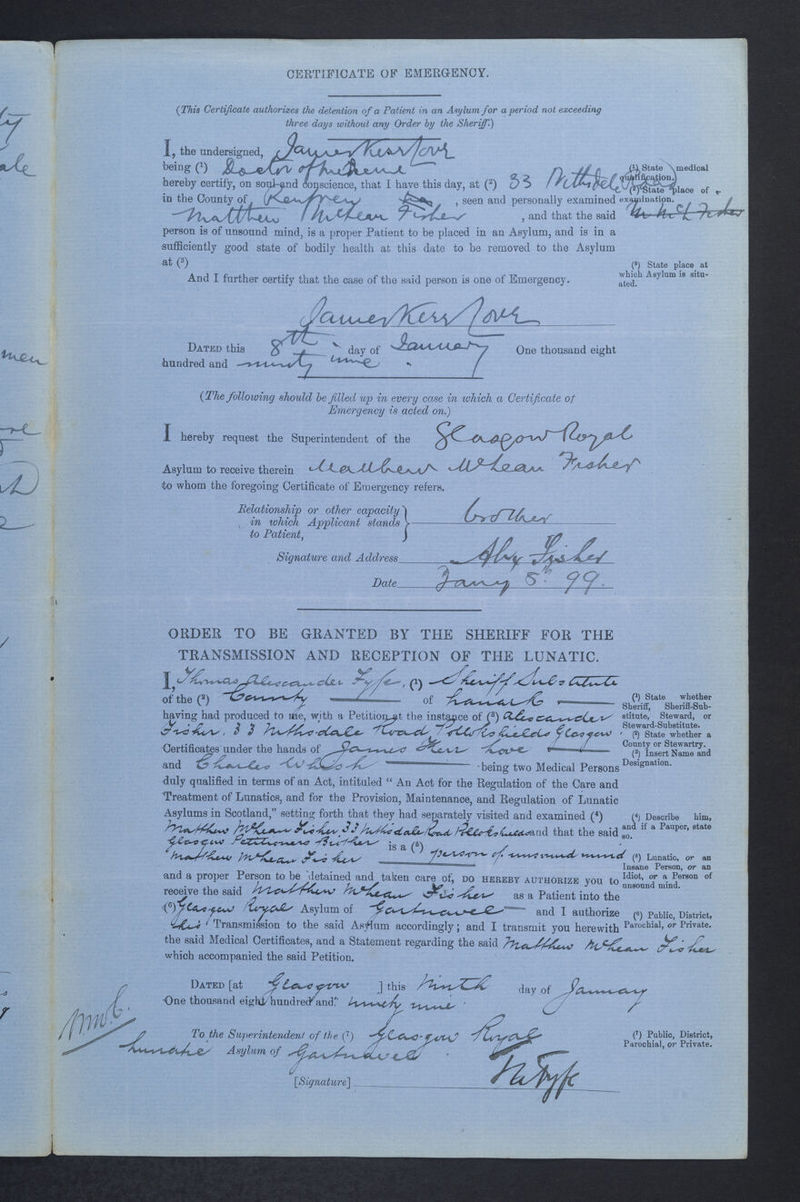 CERTIFICATE OF EMERGENCY.
(This Certificate authorizes the detention of a Patient in an Asylum for a period not exceeding
three days without any Order by the Sheriff.)
I, the undersigned, James Kerr Love
being (¹) Doctor of Medicine
(¹) State medical
qualification.
hereby certify, on soul and conscience, that I have this day, at (²) 33 Nithsdale Road
(²) State place of
examination.
in the County of Renfrew, seen and personally examined
Matthew McLean Fisher, and that the said
person is of unsound mind, is a proper Patient to be placed in an Asylum, and is in a
sufficiently good state of bodily health at this date to be removed to the Asylum
at (³)
(³) State place at
which Asylum is situ-
ated.
And I further certify that the case of the said person is one of Emergency.
James Kerr Love
DATED this 8th day of January One thousand eight
hundred and ninety nine.
(The following should be filled up in every case in which a Certificate of
Emergency is acted on.)
I hereby request the Superintendent of the Glasgow Royal
Asylum to receive therein Matthew McLean Fisher
to whom the foregoing Certificate of Emergency refers.
Relationship or other capacity
in which Applicant stands
to Patient,
brother
Signature and Address Alex Fisher
Date Jany 8th 99.
ORDER TO BE GRANTED BY THE SHERIFF FOR THE
TRANSMISSION AND RECEPTION OF THE LUNATIC.
I, Thomas Alexander Fyfe, (¹) Sheriff Substitute
of the (²) County of Lanark
(¹) State whether
Sheriff, Sheriff-Sub-
stitute, Steward, or
Steward-Substitute.
having had produced to me, with a Petition at the instance of (³) Alexander
Fisher, 33 Nithsdale Road Pollokshields Glasgow
(²) State whether a
County or Stewartry.
Certificates under the hands of James Kerr Love
(³) Insert Name and
Designation.
and Charles Walsh being two Medical Persons
duly qualified in terms of an Act, intituled "An Act for the Regulation of the Care and
Treatment of Lunatics, and for the Provision, Maintenance, and Regulation of Lunatic
Asylums in Scotland," setting forth that they had separately visited and examined (⁴)
(⁴) Describe him,
and if a Pauper, state
so.
Matthew McLean Fisher 33 Nithsdale Road Pollokshields and that the said
Glasgow Petitioners Brother
Matthew McLean Fisher is a (⁵) person of unsound mind
(⁵) Lunatic, or an
Insane Person, or an
Idiot, or a Person of
unsound mind.
and a proper Person to be detained and taken care of, DO HEREBY AUTHORIZE YOU to
receive the said Matthew McLean Fisher as a Patient into the
(⁶) Glasgow Royal Asylum of Gartnavel and I authorize
(⁶) Public, District,
Parochial, or Private.
his Transmission to the said Asylum accordingly; and I transmit you herewith
the said Medical Certificates, and a Statement regarding the said Matthew McLean Fisher
which accompanied the said Petition.
DATED [at Glasgow ] this Ninth day of January
One thousand eight hundred and ninety nine.
To the Superintendent of the (⁷) Glasgow Royal
(⁷) Public, District,
Parochial, or Private.
Lunatic Asylum of Gartnavel
[Signature] T A Fyfe